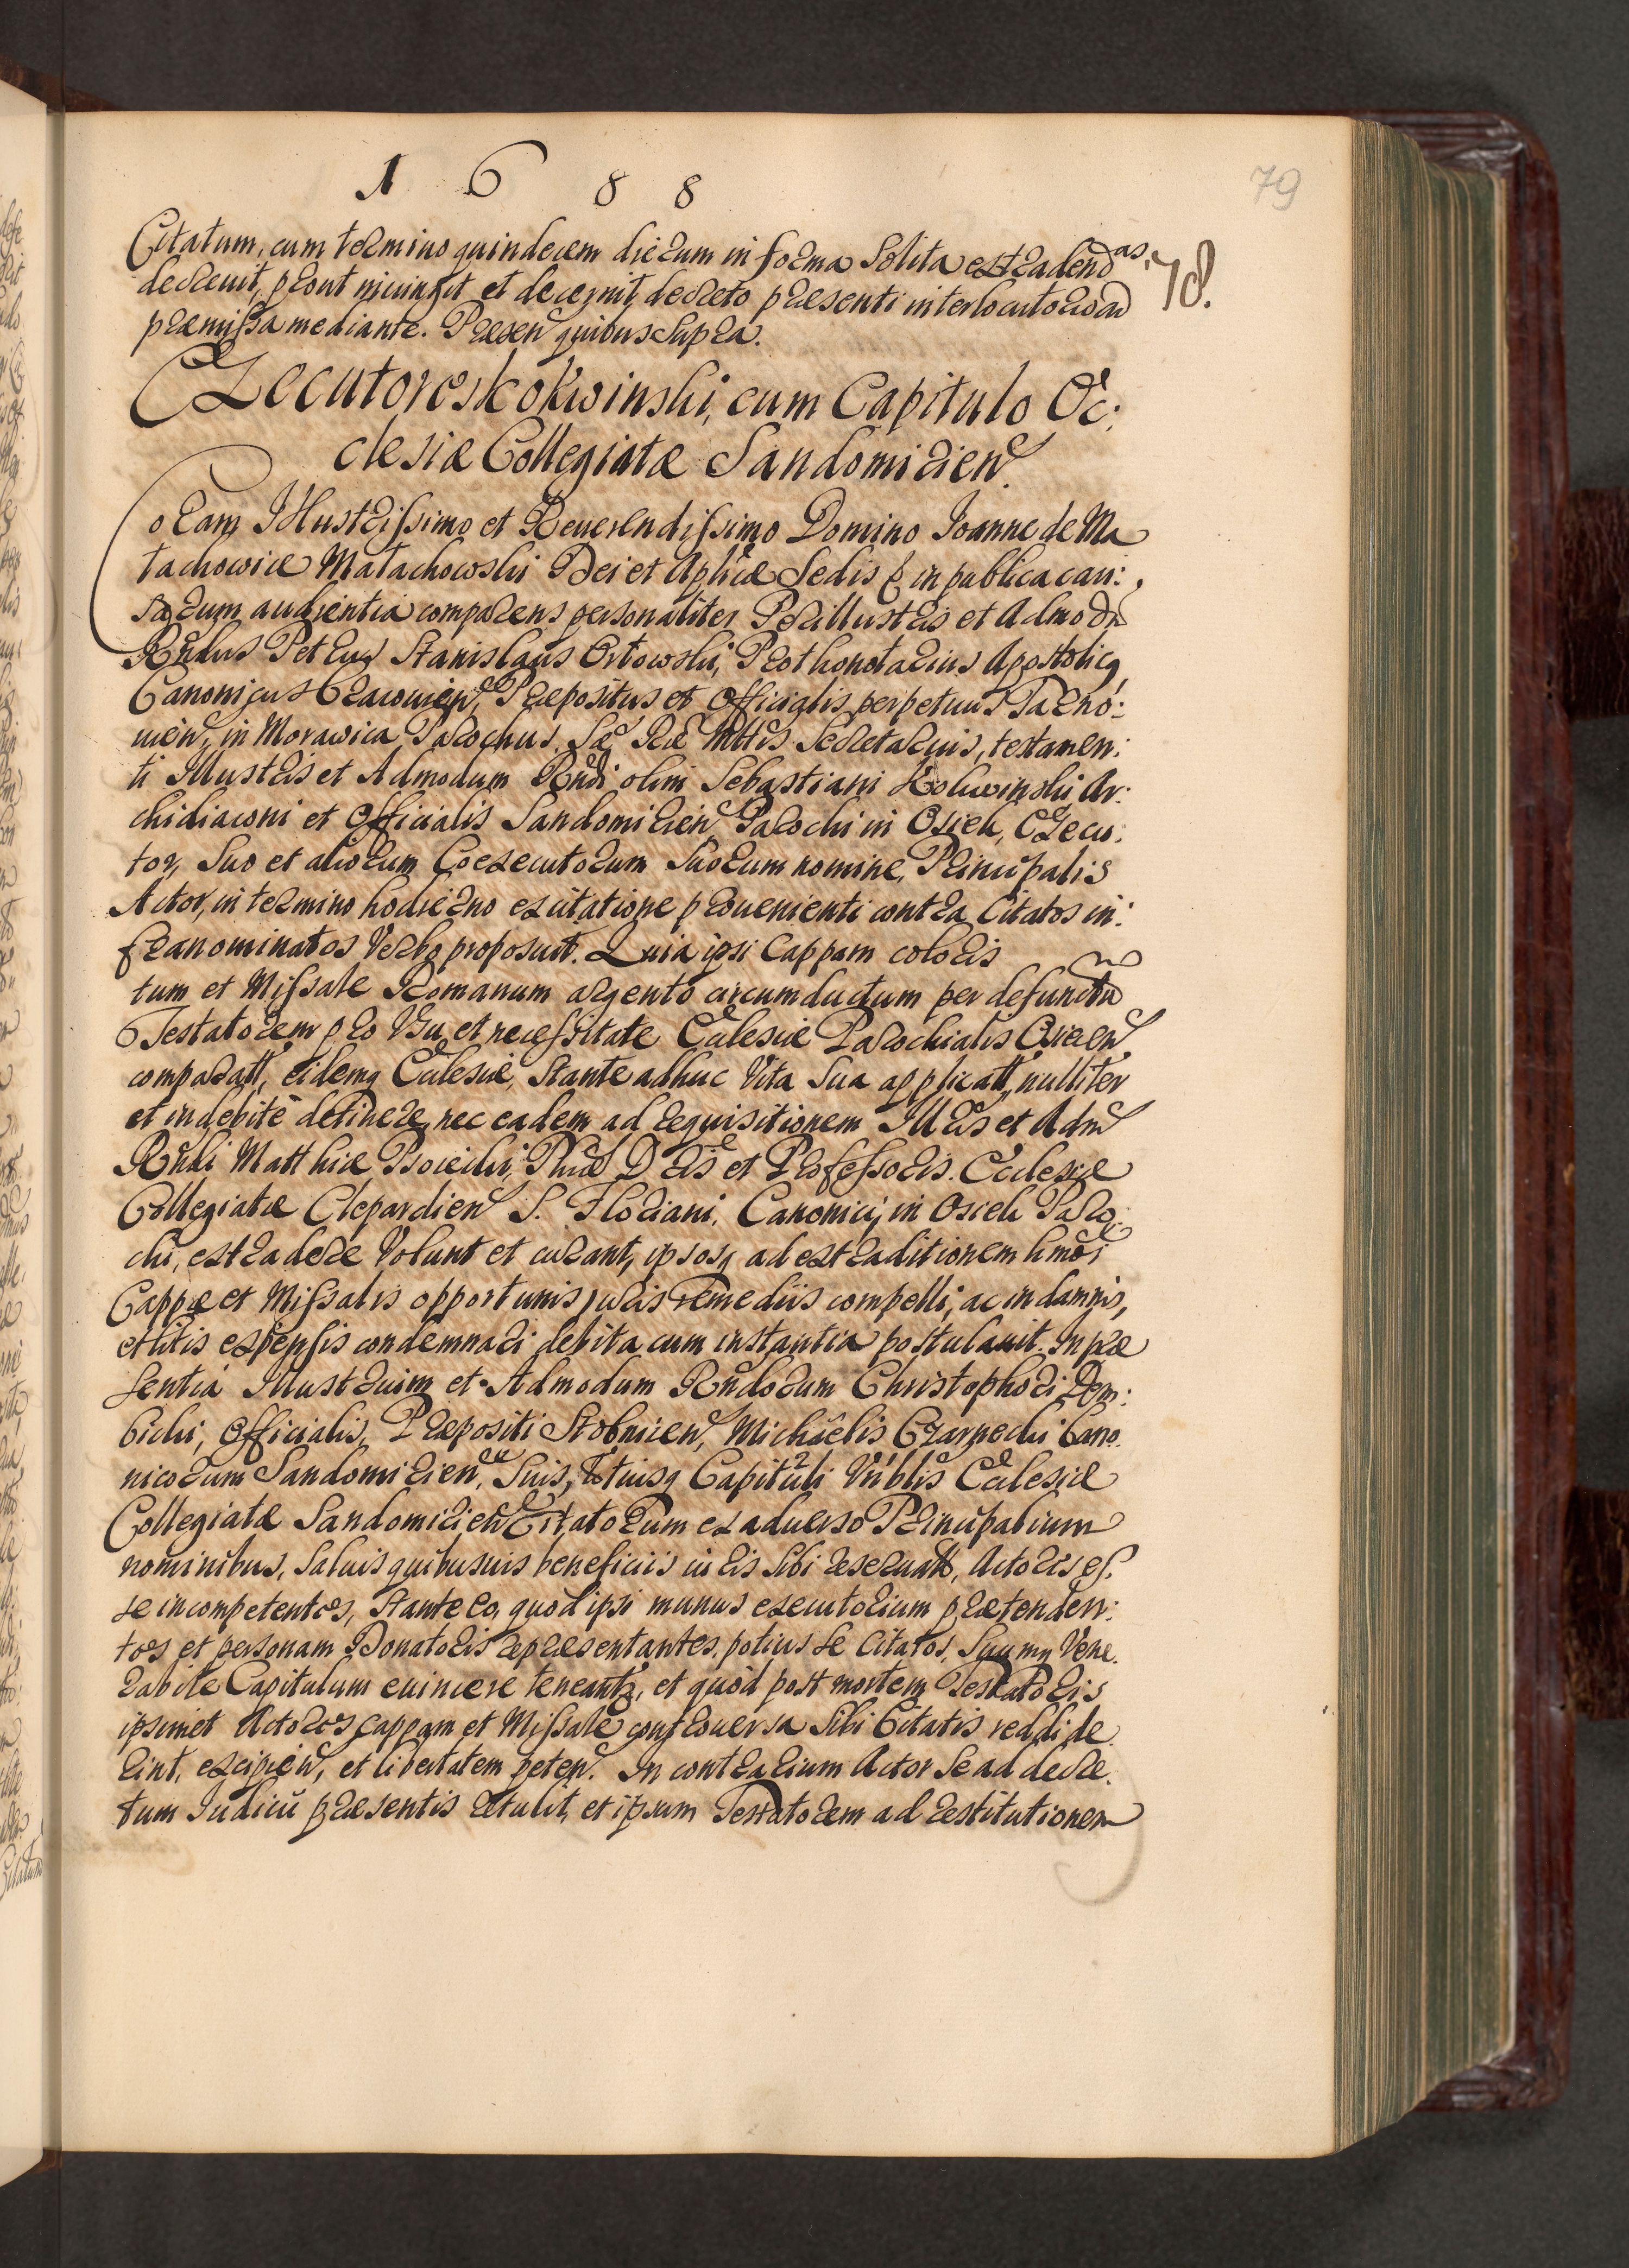 1 6 8 8
79
78.
Citatum, cum termino quindecem dierum in forma Solita extradend as.
decreuit, prout iniungit et decernit, decreto præsenti interlocutorio ad
præmissa mediante. Præsen quibus Supra.
Executores Kokwinski, cum Capitulo Ec:
clesiæ Collegiatæ Sandomirien.
Coram Illustrissimo et Reuerendissimo Domino Ioanne de Ma
łachowice Małachowski Dei et Aplicæ Sedis & in publica cau:
sarum audientia comparens personaliter Perillustris et Admodu
Rndus Petrus Stanislaus Orłowski, Prothonotarius Apostolicq,
Canonicus Cracouien, Præpositus et Officialis perpetuus Tarno:
uien, in Morawica Parochus, Sæ Ræ Mttis Secretarius, testamen:
ti Illustris et Admodum Rndi olim Sebastiani Kokwinski Ar:
chidiaconi et Officialis Sandomirien, Parochi in Osiek, Execu:
tor, Suo et aliorum Coexecutorum Suorum nomine, Principalis
Actor, in termino hodierno ex citatione proueniente contra Citatos in:
franominatos Verbo proposuit. Quia ipsi Cappam coloris
tum et Missale Romanum argento circumductum per defunctu
Testatorem pro Vsu et necessitate Ecclesiæ Parochialis Osiecen
comparatt, eidemq Ecclesiæ, Stante adhuc Vita Sua applicatt, nulliter
et indebite detinere, nec eadem ad requisitionem Illris et Adm
Rndi Matthiæ Psorcski, Phiæ Dris et Professoris. Ecclesiæ
Collegiatæ Clepardien S. Floriani, Canonici, in Osiek Paro:
chi, extradere Volunt et curant, ipsosq ad extraditionem hmoi
Cappæ et Missalis opportunis juris remediis compelli, ac in damnis,
et litis expensis condemnari debita cum instantia postulauit. In præ
sentia Illustrium et Admodum Rndorum Christophori Dem:
bicki, Officialis, Præpositi Stobnicen, Michaelis Czarnecki Cano
nicorum Sandomirien, Suis, totiusq Capituli Vnblis Ecclesiæ
Collegiatæ Sandomirien Citatorum ex aduerso Principalium
nominibus, Saluis quibusuis beneficiis iuris Sibi reseruatt, Actores es.
se incompetentes, Stante eo, quod ipsi munus executorium prætenden:
tes et personam Donatoris repræsentantes, potius se Citatos, Suumq Vene.
rabile Capitulum euincere teneantr, et quòd post mortem Testatoris
ipsimet Actores Cappam et Missale controuersa Sibi Citatis reddide.
rint, excipien, et libertatem peten. In contrarium Actor Se ad decre.
tum Iudicii præsentis retulit, et ipsum Testatorem ad restitutionem